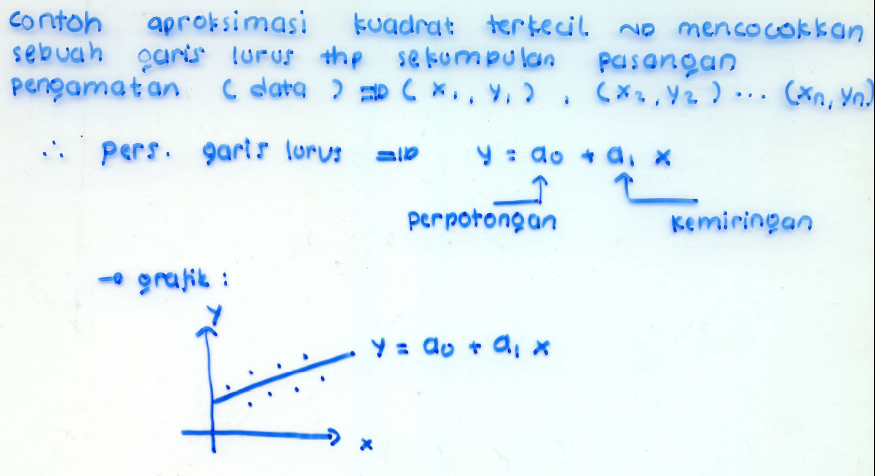 contoh aproksimasi kuadrat terkecil ⇒ mencocokkan
sebuah garis lurus thp sekumpulan pasangan
pengamatan (data) ⇒ (x₁, y₁), (x₂, y₂) ... (xn, yn)
∴ pers. garis lurus ⇒ y = a₀ + a₁ x
perpotongan kemiringan
→ grafik :
y
y = a₀ + a₁ x
x